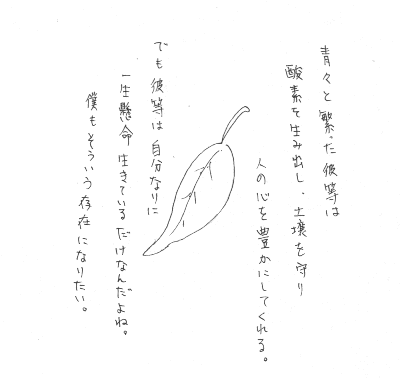 青々と繁った彼等は
酸素を生み出し、土壌を守り
人の心を豊かにしてくれる。
でも彼等は自分なりに
一生懸命生きているだけなんだよね。
僕もそういう存在になりたい。